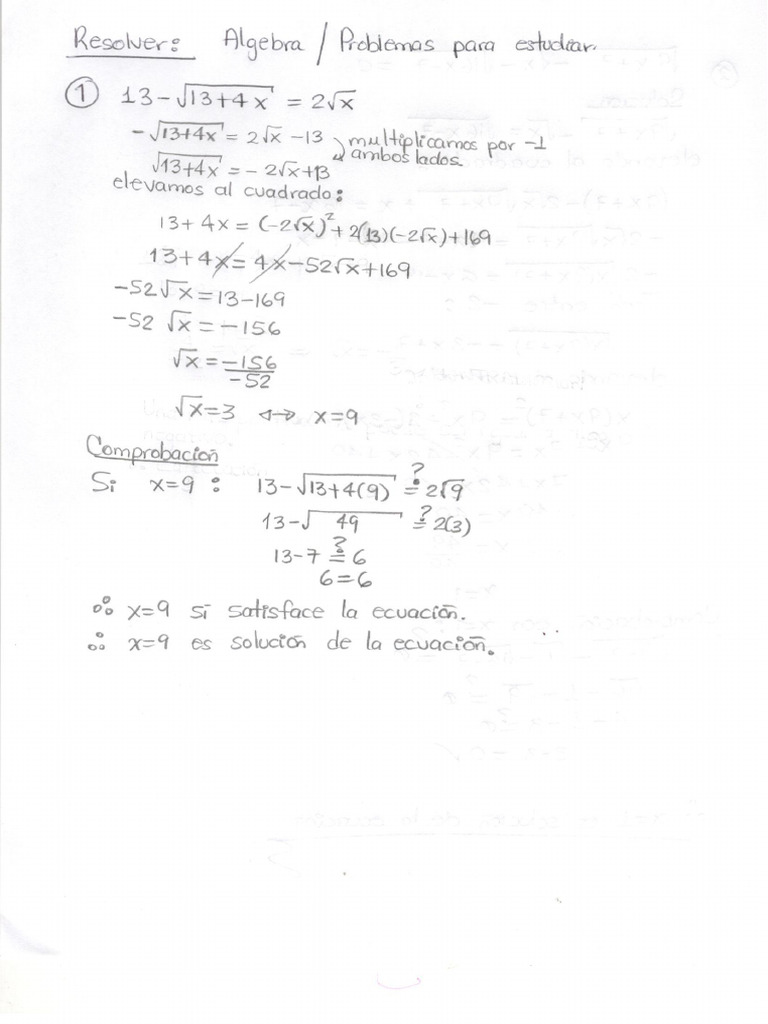 Resolver: Algebra / Problemas para estudiar.
① 13-√(13+4x) = 2√x
-√(13+4x) = 2√x -13
multiplicamos por -1
ambos lados.
√(13+4x) = -2√x+13
elevamos al cuadrado:
13+4x = (-2√x)²+2(13)(-2√x)+169
13+4x = 4x-52√x+169
-52√x = 13-169
-52 √x = -156
√x = -156/-52
√x=3 ↔ x=9
Comprobación
Si x=9 : 13-√(13+4(9)) ≟ 2√9
13-√49 ≟ 2(3)
13-7 ≟ 6
6=6
∴ x=9 si satisface la ecuación.
∴ x=9 es solución de la ecuación.